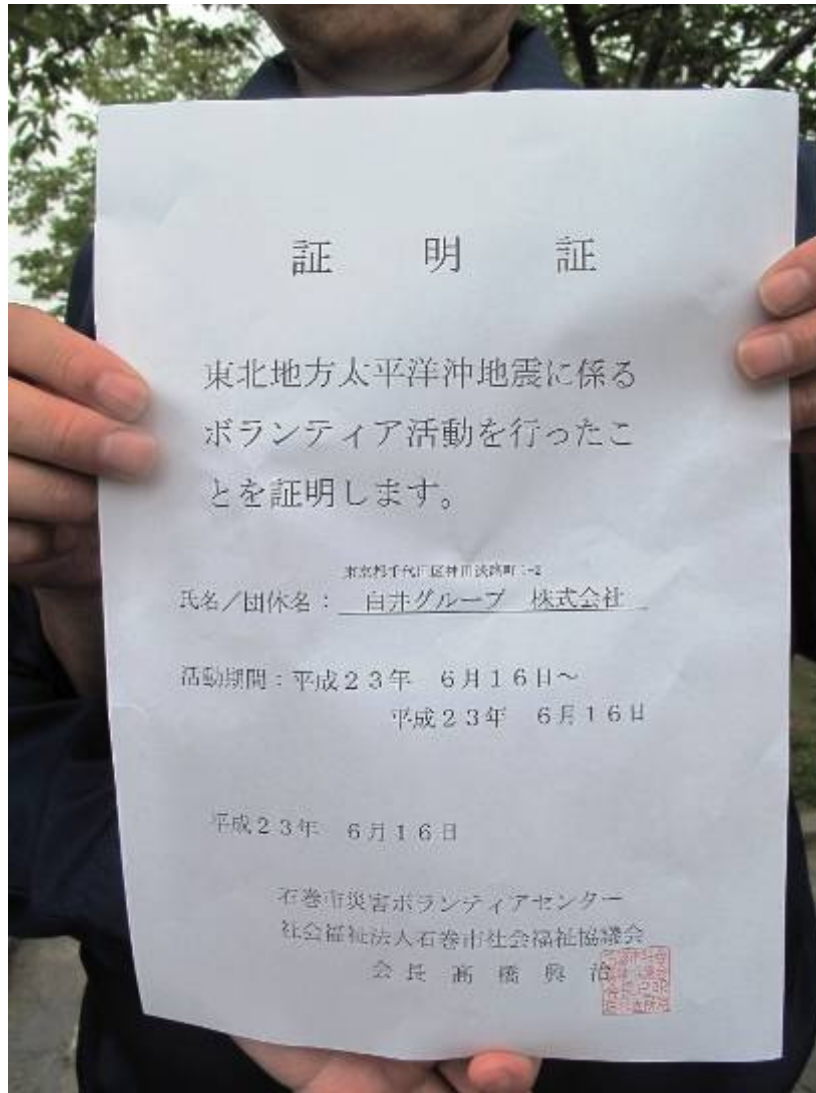 証　明　証
東北地方太平洋沖地震に係る
ボランティア活動を行ったこ
とを証明します。
東京都千代田区神田淡路町2-2
氏名／団体名：　白井グループ　株式会社
活動期間：平成２３年　６月１６日～
平成２３年　６月１６日
平成２３年　６月１６日
石巻市災害ボランティアセンター
社会福祉法人石巻市社会福祉協議会
会　長　髙　橋　興　治